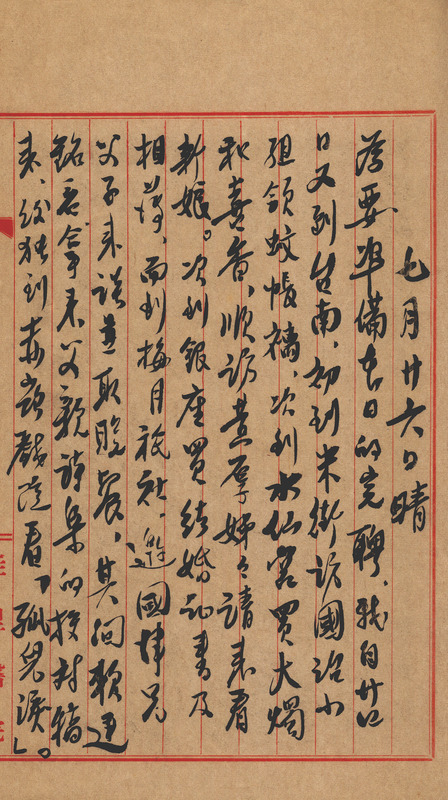 七月廿六日晴
為要準備吉日的完聘，我自廿四
日又到台南，初到米街訪國治小
姐領蚊帳襪，次到水仙宮買大燭
和喜香，順訪黃厚姊々請來看
新娘。次到銀座買結婚記書及
相簿，而到梅月龍社，邀國棟兄
父子來談並取晚餐，其間賴連
銘君拿來父親詩集的校對稿
來，後往到赤崁戲院看「孤兒淚」。